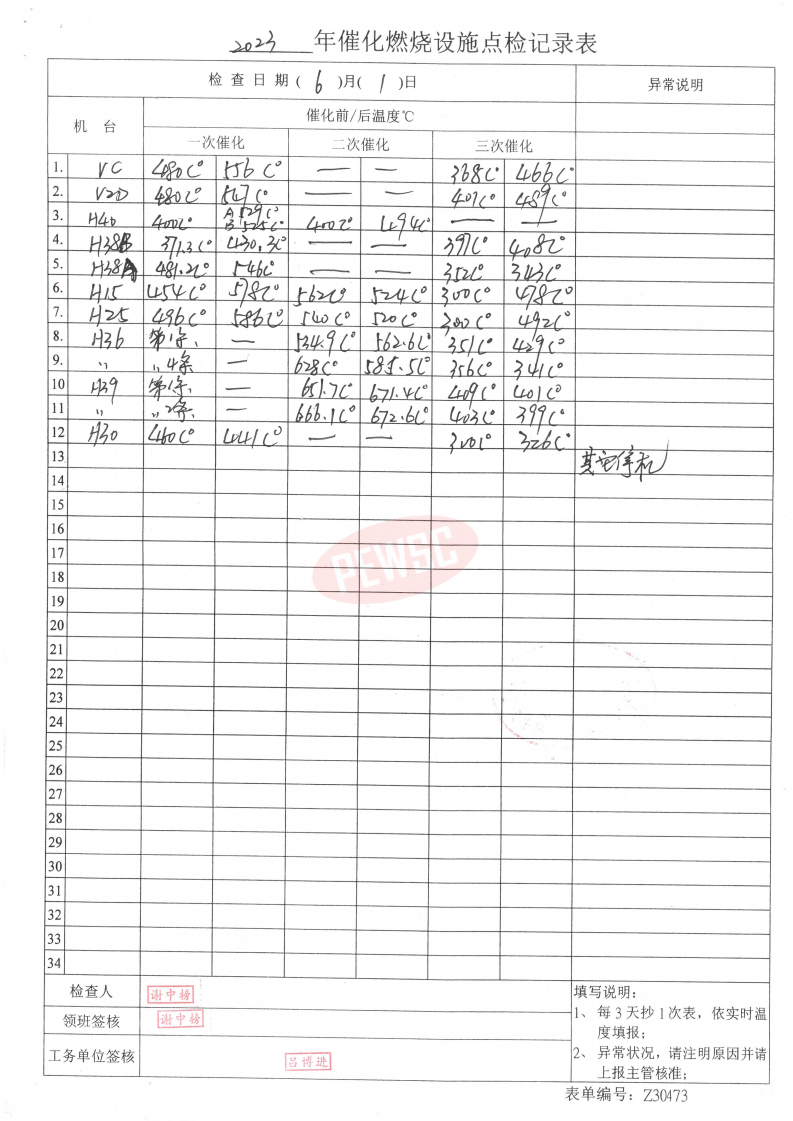 2023 年催化燃烧设施点检记录表
检 查 日 期 ( 6 )月( 1 )日 异常说明
机 台 催化前/后温度℃
一次催化 二次催化 三次催化
1. VC 480C° 556C° — — 368C° 466C°
2. V2D 480C° 547C° — — 401C° 489C°
3. H40 400C° A 529C° B 525C° 400C° 494C° — —
4. H38B 371.3C° 430.3C° — — 397C° 408C°
5. H38A 481.2C° 546C° — — 352C° 343C°
6. H15 454C° 578C° 562C° 524C° 300C° 478C°
7. H25 496C° 586C° 540C° 520C° 300C° 492C°
8. H36 第1条 — 534.9C° 562.6C° 351C° 429C°
9. 〃 〃4条 — 628C° 585.5C° 356C° 341C°
10 H39 第1条 — 651.7C° 671.4C° 409C° 401C°
11 〃 〃2条 — 666.1C° 672.6C° 403C° 399C°
12 H30 460C° 441C° — — 300C° 326C°
13 其它停机
14
15
16
17
PEWSC
18
19
20
21
22
23
24
25
26
27
28
29
30
31
32
33
34
检查人 谢中榜
领班签核 谢中榜
工务单位签核 吕博进
填写说明：
1、每 3 天抄 1 次表，依实时温
度填报；
2、异常状况，请注明原因并请
上报主管核准；
表单编号：Z30473